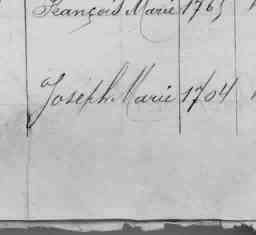 François Marie 1765
Joseph Marie 1704